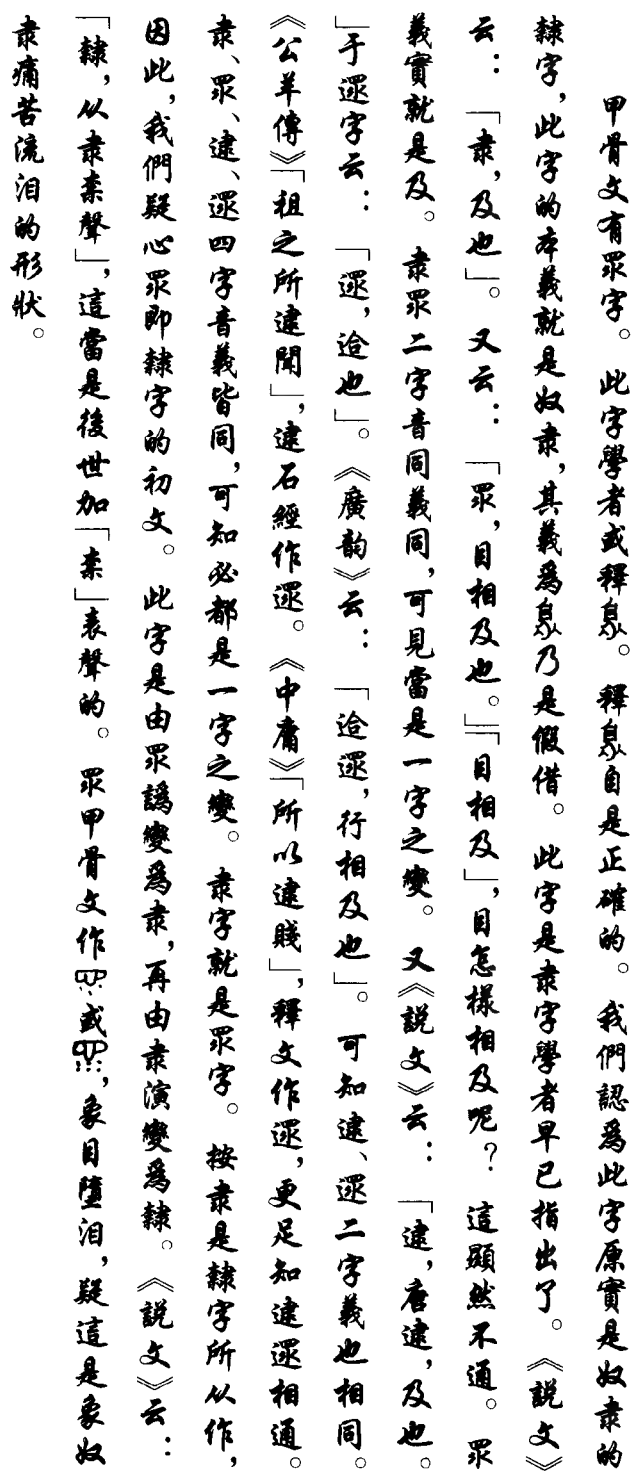 甲骨文有眔字。此字學者或釋臮。釋臮自是正確的。我們認爲此字原實是奴隶的
隸字，此字的本義就是奴隶，其義爲臮乃是假借。此字是隶字學者早已指出了。《説文》
云：「隶，及也」。又云：「眔，目相及也。」「目相及」，目怎樣相及呢？這顯然不通。眔
義實就是及。隶眔二字音同義同，可見當是一字之變。又《説文》云：「逮，唐逮，及也。
」于遝字云：「遝，迨也」。《廣韵》云：「迨遝，行相及也」。可知逮、遝二字義也相同。
《公羊傳》「祖之所逮聞」，逮石經作遝。《中庸》「所以逮賤」，釋文作遝，更足知逮遝相通。
隶、眔、逮、遝四字音義皆同，可知必都是一字之變。隶字就是眔字。按隶是隸字所从作，
因此，我們疑心眔即隸字的初文。此字是由眔譌變爲隶，再由隶演變爲隸。《説文》云：
「隸，从隶柰聲」，這當是後世加「柰」表聲的。眔甲骨文作或，象目墮泪，疑這是象奴
隶痛苦流泪的形狀。